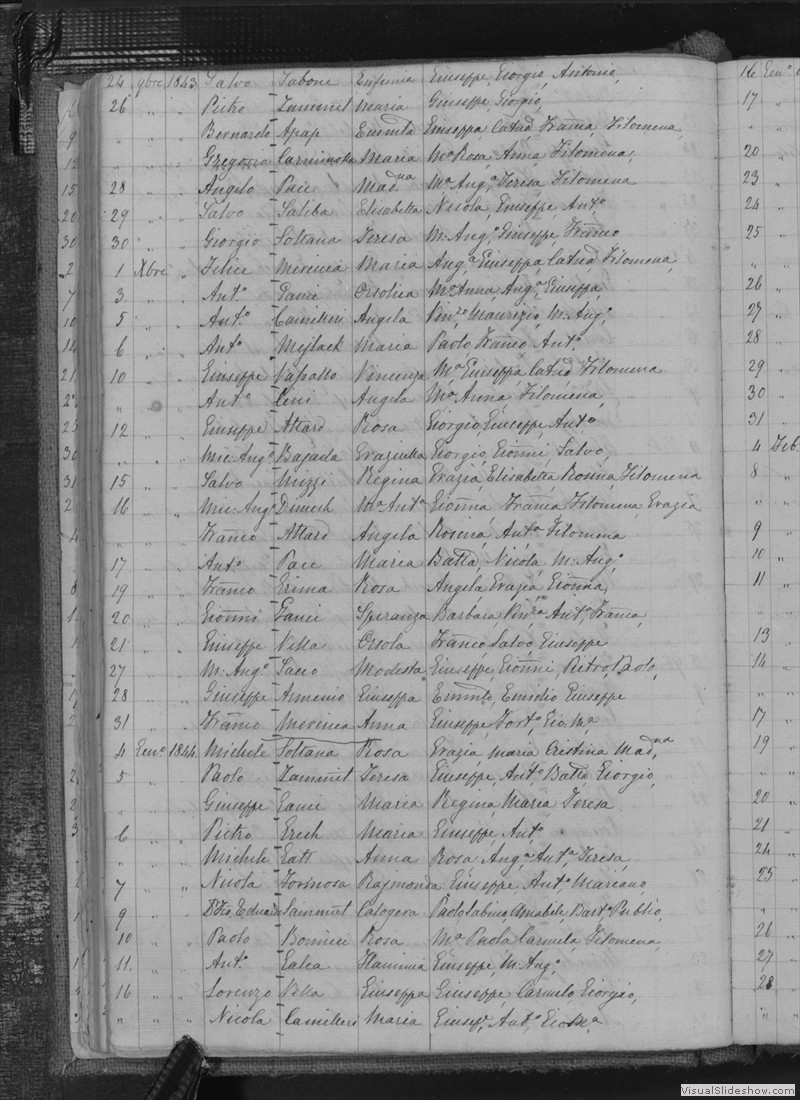 24 9bre 1843 Salvo Sabone Eufemia Giuseppe, Giorgio, Antonio,
26 " " Pietro Zammit Maria Giuseppe, Giorgio,
" " " Bernardo Apap Giuseppa, Catna, Franca, Filomena,
" " " Maria Ma Rosa, Anna Filomena,
28 " " Angelo Pace Madna Ma Anga, Teresa Filomena
29 " " Salvo Saliba Elisabetta Nicola, Giuseppe, Anto
30 " " Giorgio Soltana Teresa M: Ango, Giuseppe, Franco
1 Xbre " Felice Mevenea Maria Anga, Giuseppa, Catna, Filomena,
3 " " Anto Ganci Orsolica Ma Anna, Anga, Giuseppa,
5 " " Anto Camilleri Angela Vinzo, Maurizio, M: Ango,
6 " " Anto Mejlack Maria Paolo, Franco, Anto
10 " " Giuseppe Vassallo Vincenza Ma Giuseppa, Catna, Filomena
" " " Anto Angela Ma Anna, Filomena,
12 " " Giuseppe Attard Rosa Giorgio, Giuseppe, Anto
" " " Mic: Ango Bajada Graziulla Giorgio, Gionni, Salvo,
15 " " Salvo Mizzi Regina Grazia, Elisabetta, Rosina, Filomena
16 " " Mic: Ango Dimech Ma Anta Gionna Franca Filomena, Grazia
" " " Franco Attard Angela Rosina, Anta Filomena
17 " " Anto Pace Maria Batta, Nicola, M: Ango,
19 " " Franco Grima Rosa Angela, Grazia, Gionna,
20 " " Gionni Ganci Speranza Barbara, Vinza, Anta, Franca,
21 " " Giuseppe Vella Orsola Franco, Salvo, Giuseppe
27 " " M: Ango Modesta Giuseppe, Gionni, Pietro, Paolo,
28 " " Giuseppe Armenio Giuseppa Emilio, Giuseppe
31 " " Franco Mevenea Anna Giuseppe, Forto,
4 Geno 1844 Michele Soltana Rosa Grazia, Maria Cristina Madna
5 " " Paolo Zammit Teresa Giuseppe, Anto, Batta, Giorgio,
" " " Giuseppe Ganci Maria Regina, Maria, Teresa
6 " " Pietro Grech Maria Giuseppe, Anto,
" " " Michele Gatt Anna Rosa, Anga, Anta, Teresa,
7 " " Nicola Formosa Raimonda Giuseppe, Anto, Mariano,
9 " " Sammut Calogera Paolo, Sabino, Amabile, Barto, Publio,
10 " " Paolo Bonnici Rosa Ma Paola, Carmela, Filomena,
11 " " Anto Galea Flaminia Giuseppe, M: Ango,
16 " " Lorenzo Vella Giuseppa Giuseppe, Carmelo, Giorgio,
" " " Nicola Camilleri Maria Giuse, Anto,
16 Geno
17 "
20 "
23 "
24 "
25 "
26 "
27 "
28 "
29 "
30 "
31 "
4 Feb.
8 "
9 "
10 "
11 "
13 "
14 "
17 "
19 "
20 "
21 "
24 "
25 "
26 "
27 "
28 "
VisualSlideshow.com